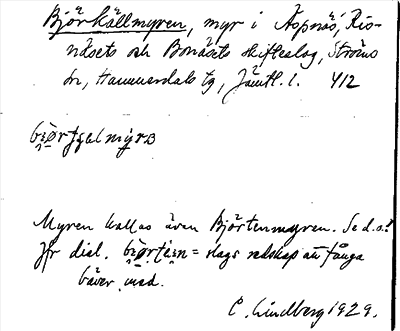 Björkällmyren, myr i Äspnäs, Ris-
näsets och Bonäsets skifteslag, Ströms
sn, Hammerdals tg, Jämtl. l. 412
Myren kallas även Björtenmyren. Se d.o.!
Jfr dial. = slags redskap att fånga
bäver med.
C. Lindberg 1929.